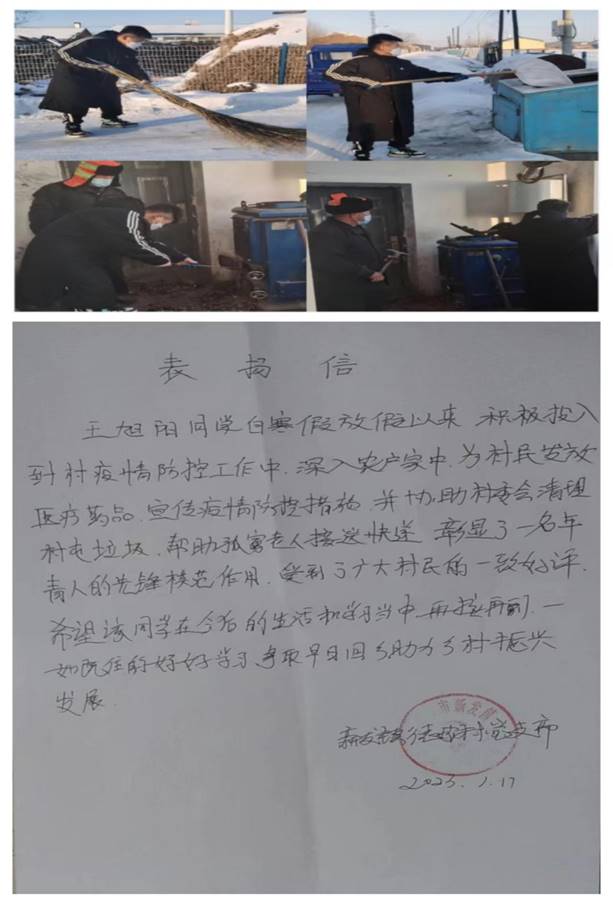 表扬信
王旭阳同学自寒假放假以来 积极投入
到村疫情防控工作中,深入农户家中,为村民发放
医疗药品、宣传疫情防控措施,并协助村委会清理
村屯垃圾,帮助孤寡老人接送快递 彰显了一名年
青人的先锋模范作用,受到了广大村民的一致好评.
希望该同学在今后的生活和学习当中再接再到,一
如既往的好好学习,争取早日回乡助力乡村振兴
发展.
市新发
村党支部
2023.1.17